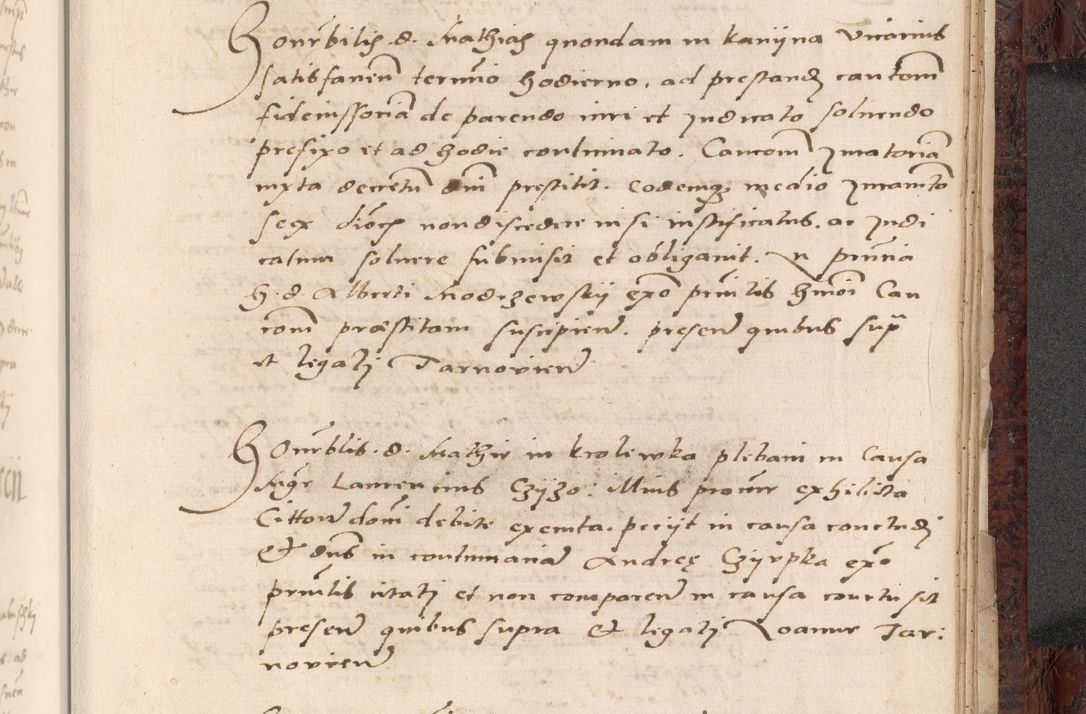 Honrbilis d. Mathias quondam in Kanijna Vicarius
satisfaciend termino hodierno, ad prestand cautiom
fideiussoriam de parendo iuri et Iudicato solvendo
prefixo et ad hodie continuato. Caucom Iuratoriam
iuxta decretum dni prestitit. Eodemq medio Iuramto
se ex dioces non discedere ni si iustificatus. ac Iudi
catum solvere submisit et obligavit. In pnтia
h. d. Alberti Modrzewskij exo princilis hmoi Cau
com praestitam suscipien. presen quibus supra
et legalj Tarnovien

Honrblis. d. Mathie in Krolewka plebani in Causa
Mgr Laurencius Czyzo: Illius procur exhibita
Cittoem domi debite executa. pecijt in causa concludj
Et dnus in contumacia Andreę Czijrpka exo
princilis citatj et non comparen in causa conclusit
presen quibus supra Et legalj Joanne Tar:
novien